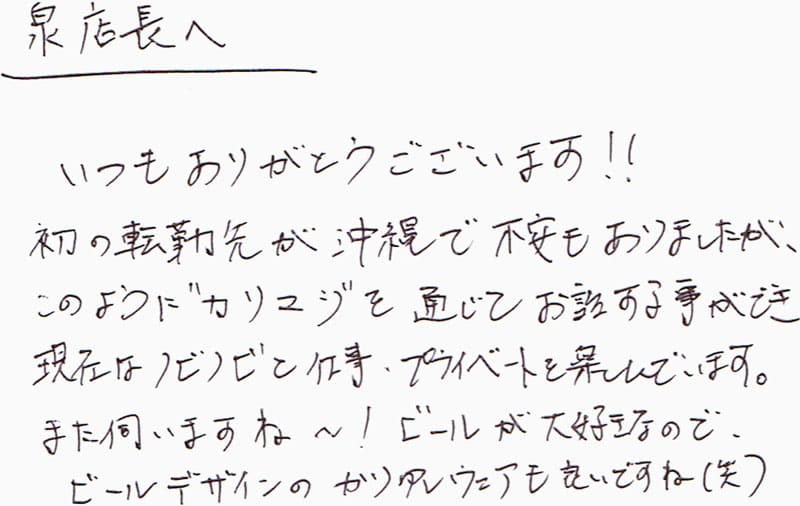 泉店長へ
いつもありがとうございます!!
初の転勤先が沖縄で不安もおりましたが、
このように"カリユシ"を通じてお話する事ができ
現在はノビノビと仕事・プライベートを楽しんでいます。
また伺いますね〜! ビールが大好きなので、
ビールデザインのかりゆしウェアも良いですね(笑)